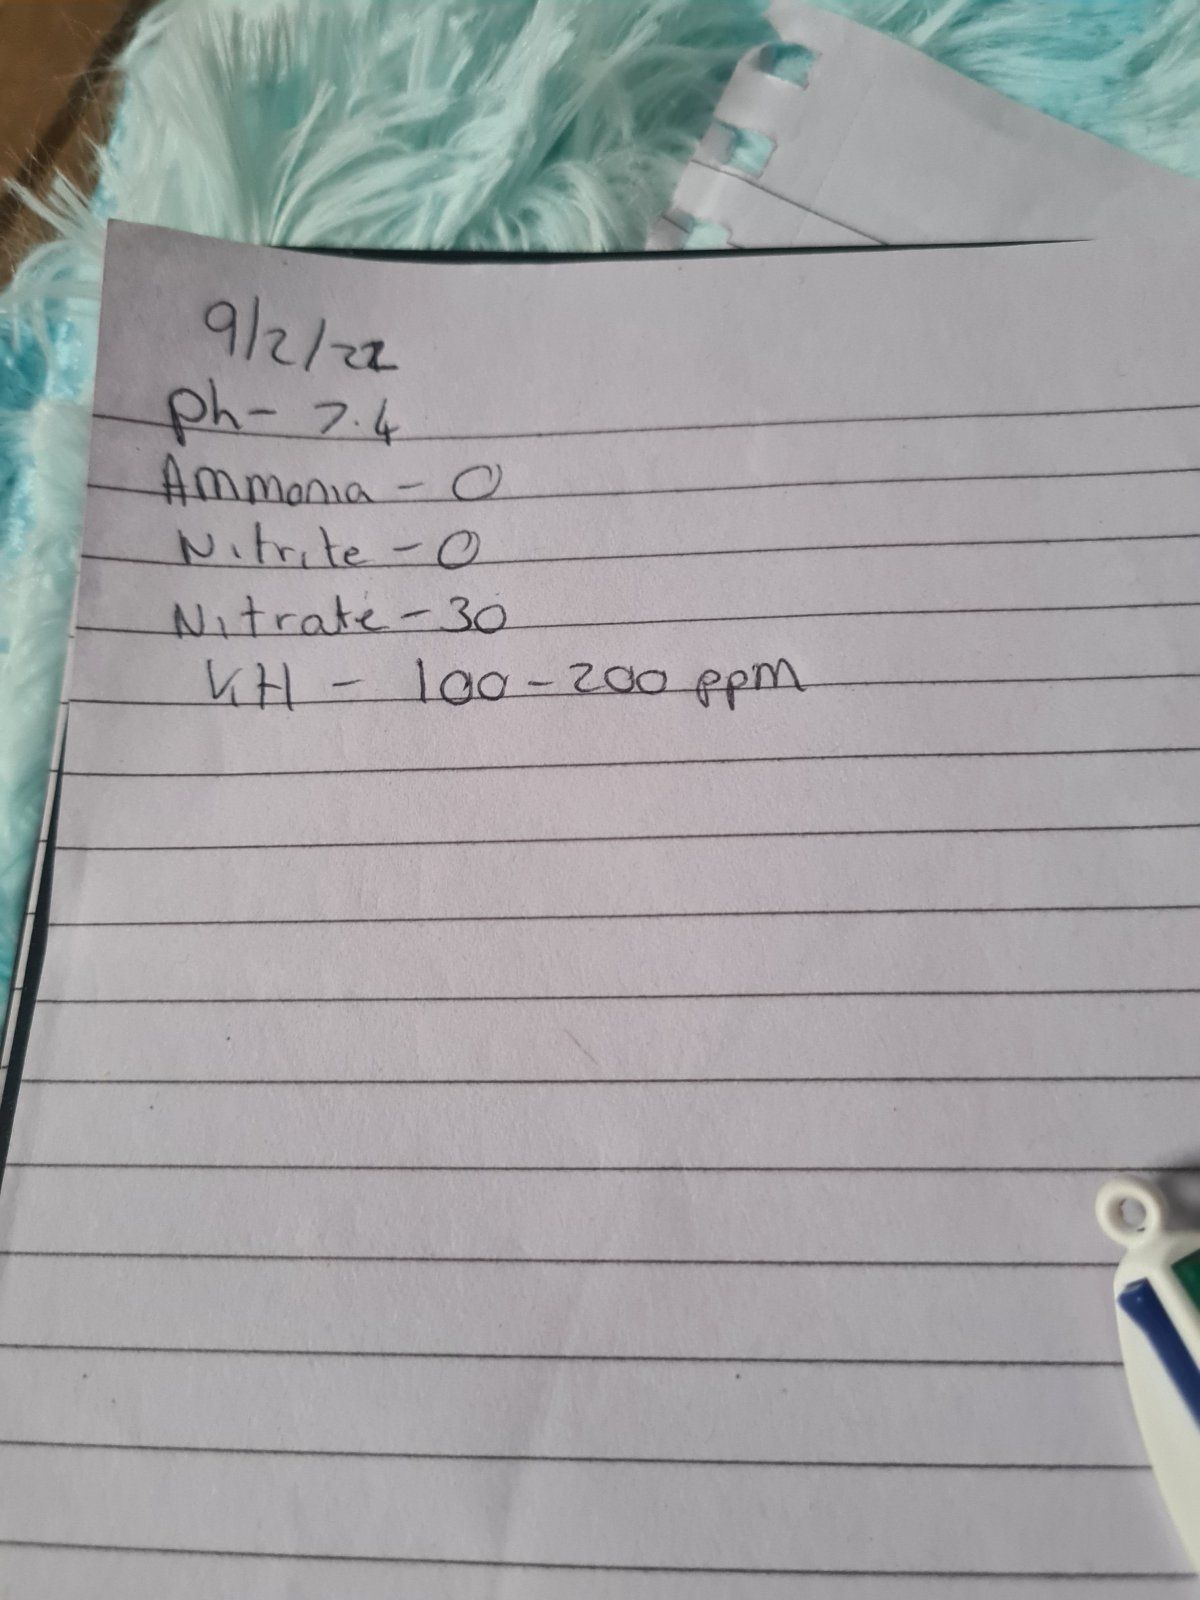 9/2/22
ph - 7.4
Ammonia - 0
Nitrite - 0
Nitrate - 30
KH - 100 - 200 ppm